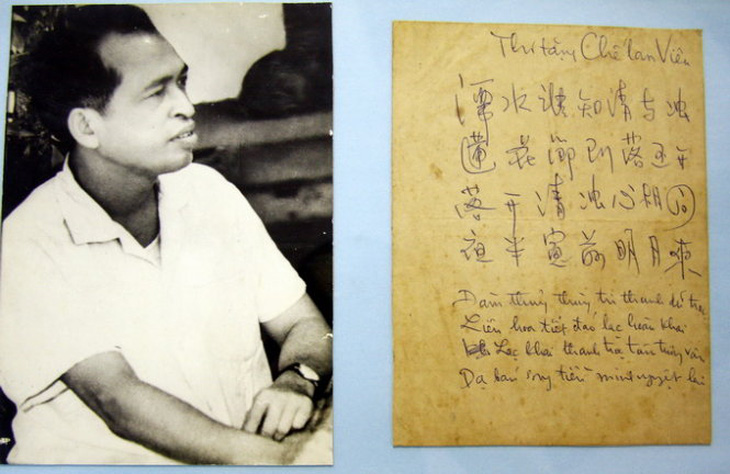 Thơ tặng Chế Lan Viên
潭水誰知清与浊
蓮花節到落还开
落开清浊心相问
夜半窓前明月來
Đàm thuỷ thuỳ tri thanh dữ trọc
Liên hoa tiết đáo lạc hoàn khai
Lạc khai thanh trọc vấn
Dạ bán song tiền minh nguyệt lai